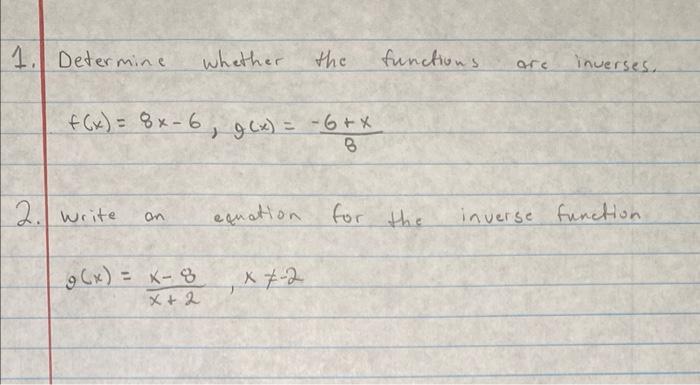 1. Determine whether the functions are inverses.
f(x) = 8x - 6, g(x) = -6 + x / 8
2. write an equation for the inverse function
g(x) = x - 8 / x + 2, x ≠ -2